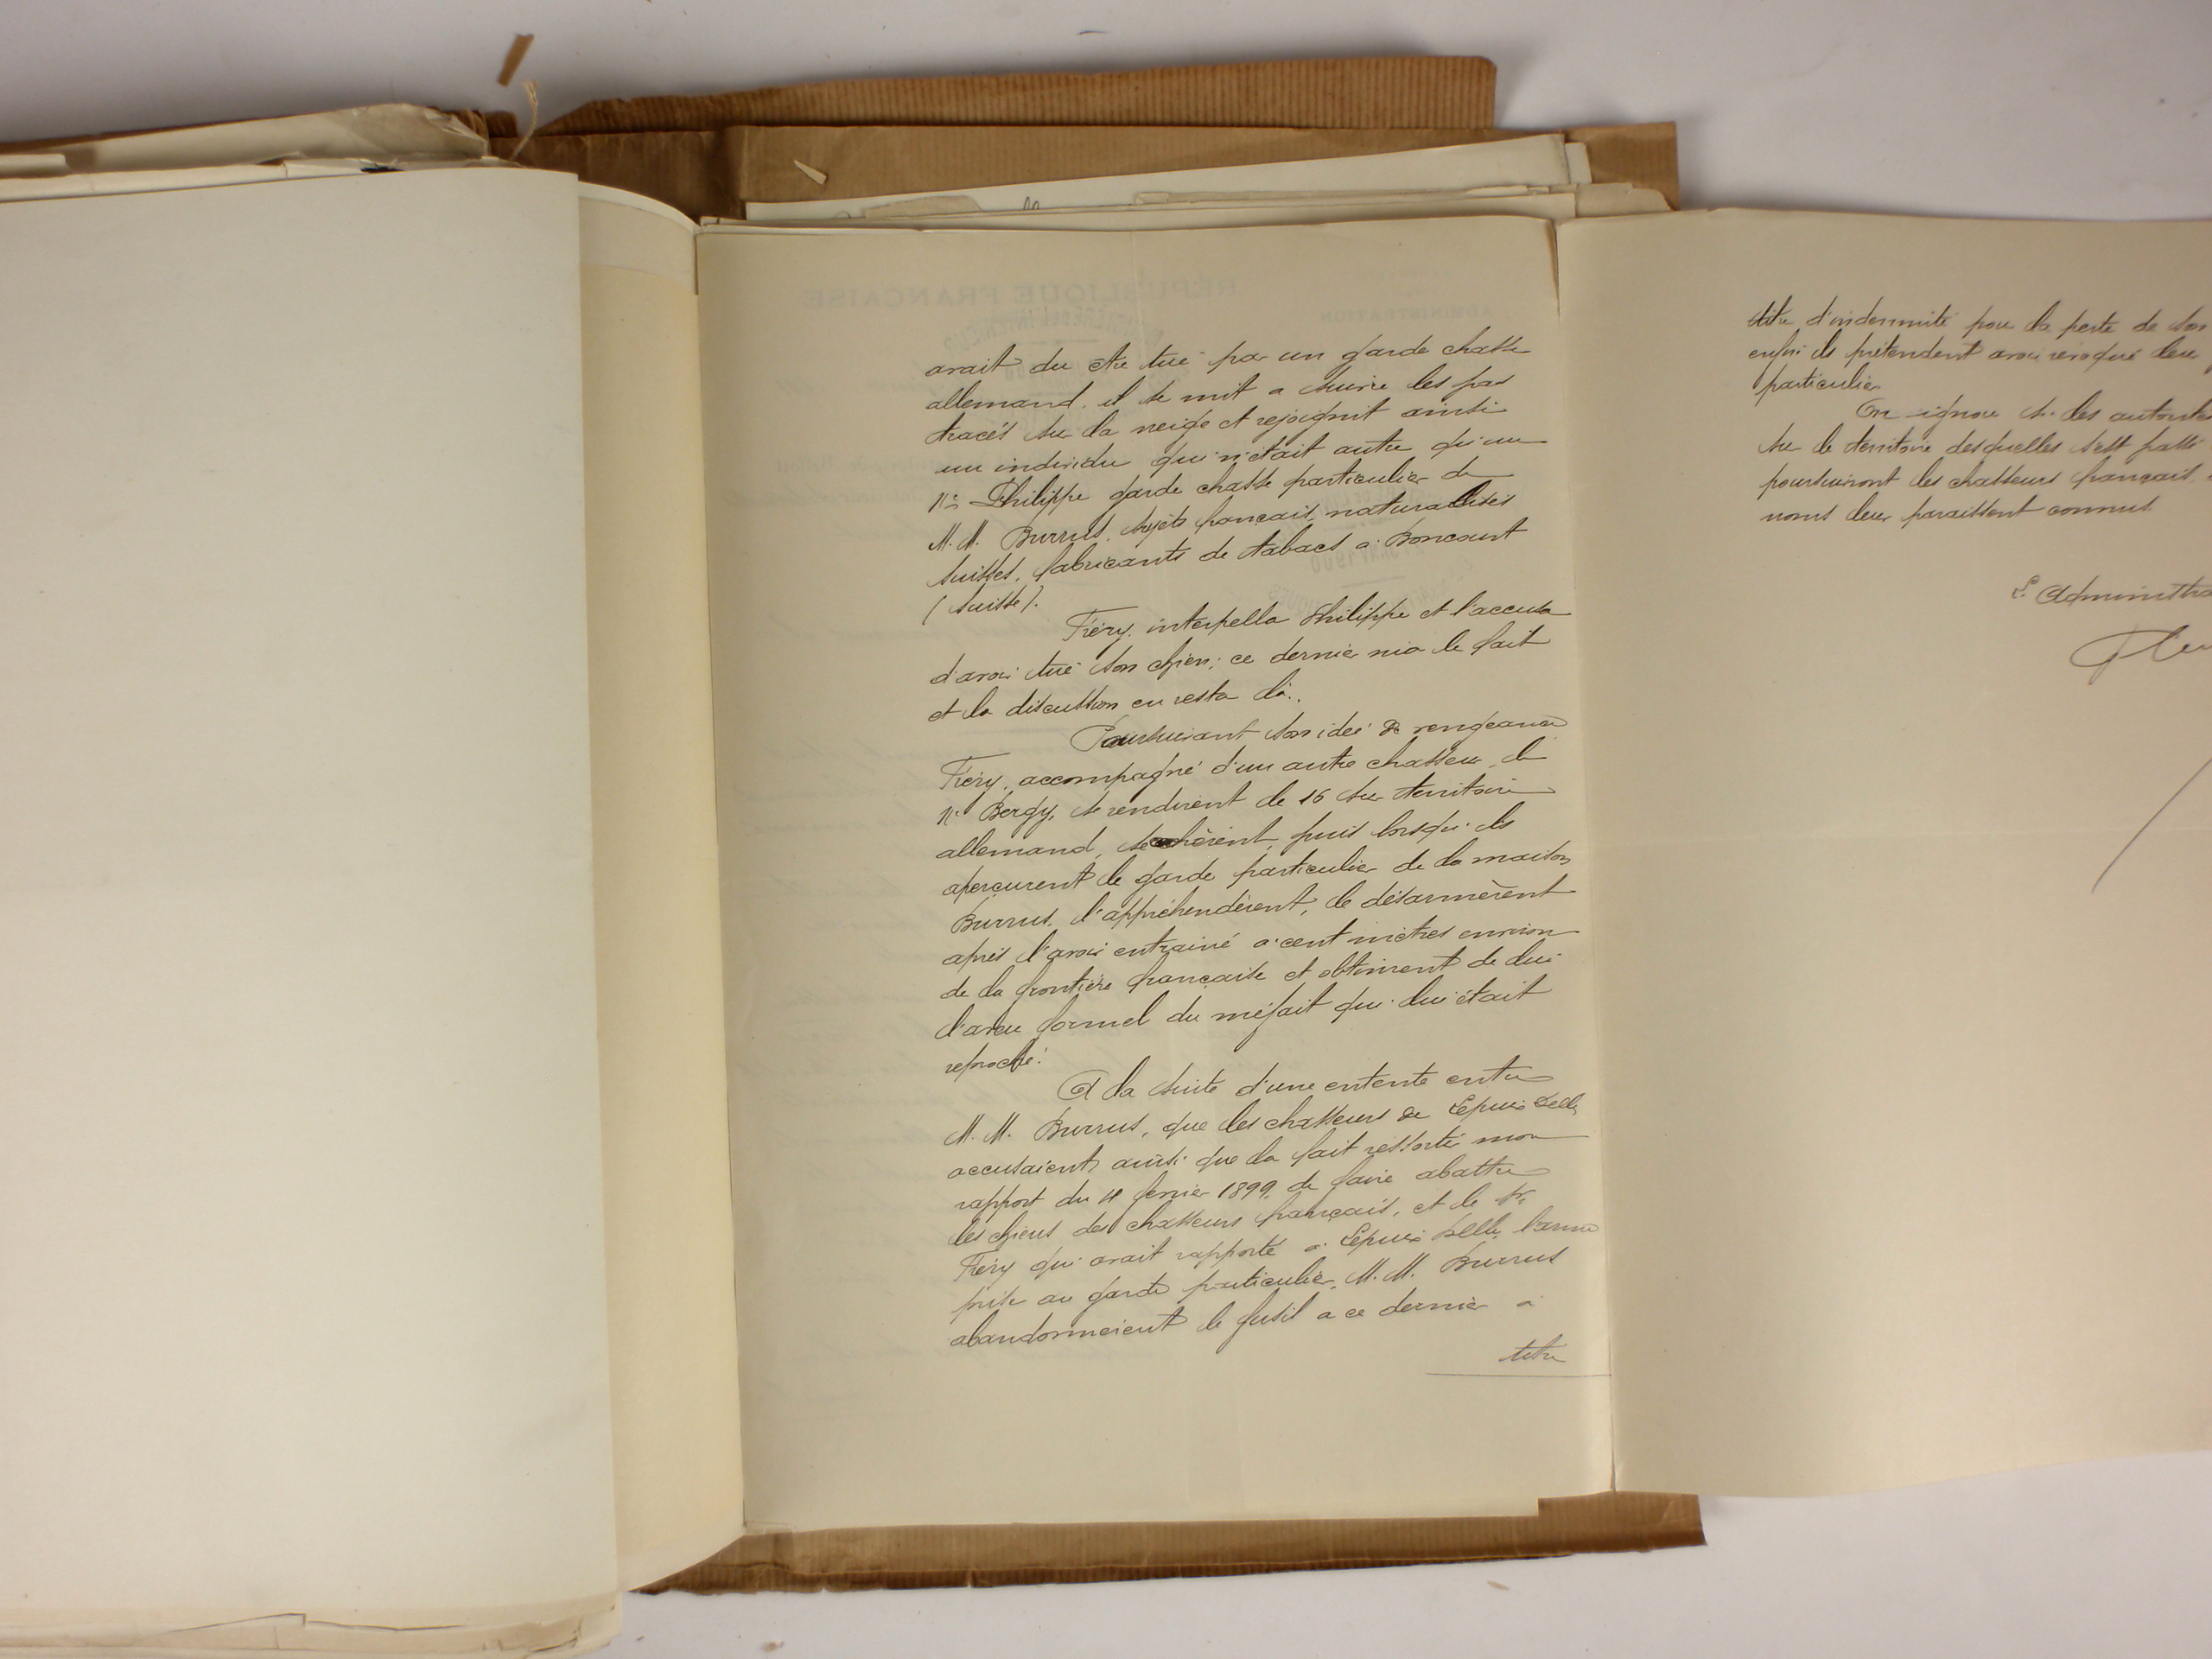 avait du être tué par un garde chasse
allemand. il se mit a suivre les pas
tracés sur la neige et rejoignit ainsi
un individu qui n'était autre qu'un
Né Philippe garde chasse particulier de
M. M. Burrus, sujets français, naturalisés
suisses, fabricants de tabacs à Boncourt
(Suisse).
Fréry interpella Philippe et l'accusa
d'avoir tué son chien; ce dernier nia le fait
et la discussion en resta là.
Poursuivant son idée de vengeance
Fréry, accompagné d'un autre chasseur, le
Né Bergy, se rendirent le 16 sur territoire
allemand, se cachèrent, puis lorsqu'ils
aperçurent le garde particulier de la maison
Burrus, l'appréhendèrent, le désarmèrent
après l'avoir entrainé à cent mètres environ
de la frontière française et obtinrent de lui
l'aveu formel du méfait qui lui était
reproché.
A la suite d'une entente entre
M. M. Burrus, que les chasseurs de Lepuix Delle
accusaient, ainsi que la fait ressortir mon
rapport du février 1899, de faire abattre
les chiens des chasseurs français, et le Sr
Fréry qui avait rapporté à Lepuix Delle, l'arme
prise au garde particulier, M. M. Burrus
abandonnaient le fusil a ce dernier à
titre
RÉPUBLIQUE FRANÇAISE
ADMINISTRATION
titre d'indemnité pour la perte de son
enfin ils prétendent avoir révoqué leur
particulier
On ignore si les autorités
sur le territoire desquelles s'est passé
poursuivront les chasseurs français
noms leur paraissent connus.
L'Administra